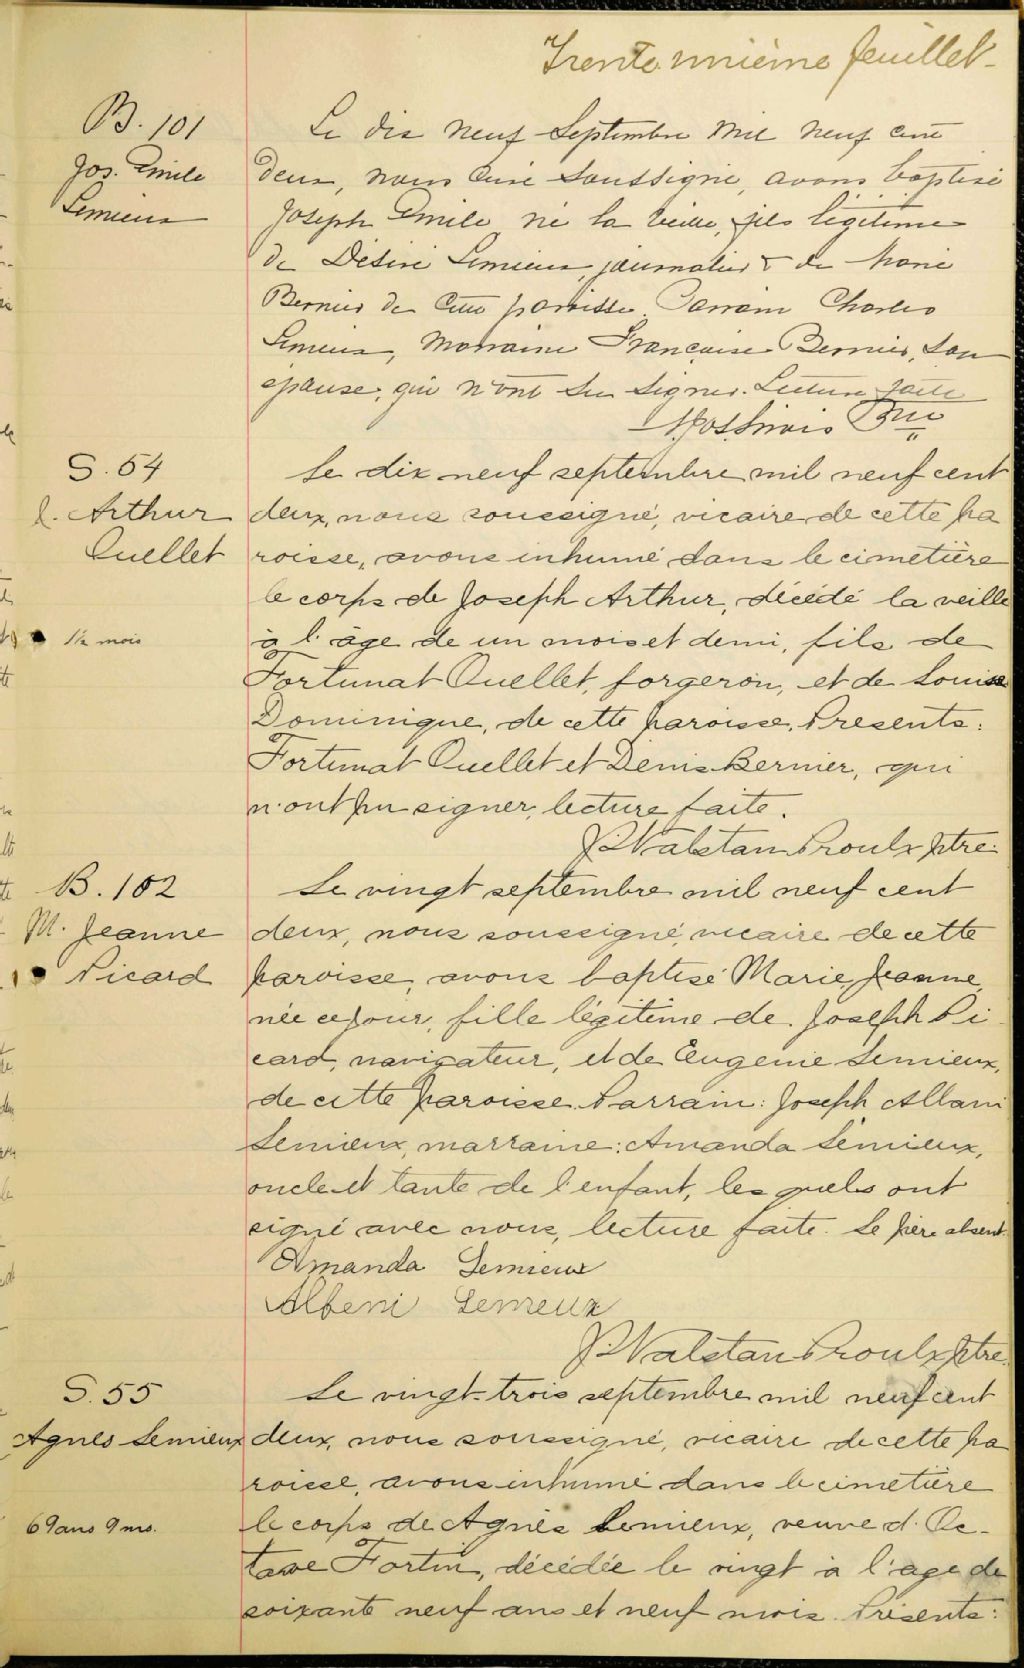 Trente unième feuillet
B. 101
Jos. Emile
Lemieux
Le dix neuf Septembre mil neuf cent
deux, nous Curé soussigné, avons baptisé
Joseph Emile né la veille, fils légitime
de Désiré Lemieux, journalier & de Marie
Bernier de cette paroisse. Parrain Charles
Lemieux, Marraine Françoise Bernier, son
épouse, qui n'ont su signer. Lecture faite
Ptre
S. 54
J. Arthur
Ouellet
1½ mois
Le dix neuf septembre mil neuf cent
deux, nous soussigné, vicaire de cette pa
roisse, avons inhumé dans le cimetière
le corps de Joseph Arthur, décédé la veille
à l'âge de un mois et demi, fils de
Fortunat Ouellet, forgeron, et de Louise
Dominique, de cette paroisse. Presents:
Fortunat Ouellet et Denis Bernier, qui
n'ont pu signer, lecture faite.
J. Walstan Proulx ptre.
B. 102
M. Jeanne
Picard
Le vingt septembre mil neuf cent
deux, nous soussigné, vicaire de cette
paroisse, avons baptisé Marie Jeanne,
née ce jour, fille légitime de Joseph Pi
card, navigateur, et de Eugenie Lemieux,
de cette paroisse. Parrain: Joseph Albani
Lemieux, marraine: Amanda Lemieux,
oncle et tante de l'enfant, les quels ont
signé avec nous, lecture faite. Le père absent
Amanda Lemieux
Albeni Lemieux
J. Walstan Proulx ptre.
S. 55
Agnes Lemieux
69 ans 9 ms.
Le vingt-trois septembre mil neuf cent
deux, nous soussigné, vicaire de cette pa
roisse, avons inhumé dans le cimetière
le corps de Agnès Lemieux, veuve d'Oc-
tave Fortin, décédée le vingt à l'age de
soixante neuf ans et neuf mois. Présents: